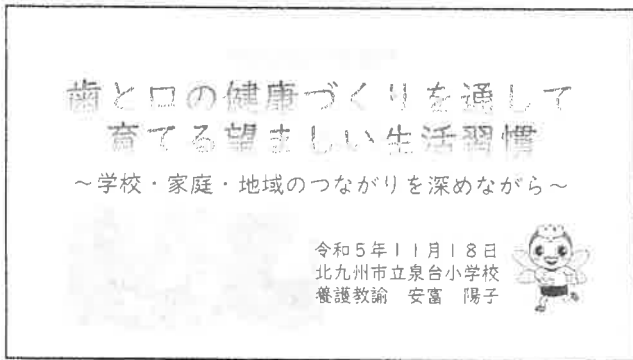 歯と口の健康づくりを通して
育てる望ましい生活習慣
～学校・家庭・地域のつながりを深めながら～
令和5年11月18日
北九州市立泉台小学校
養護教諭　安富　陽子